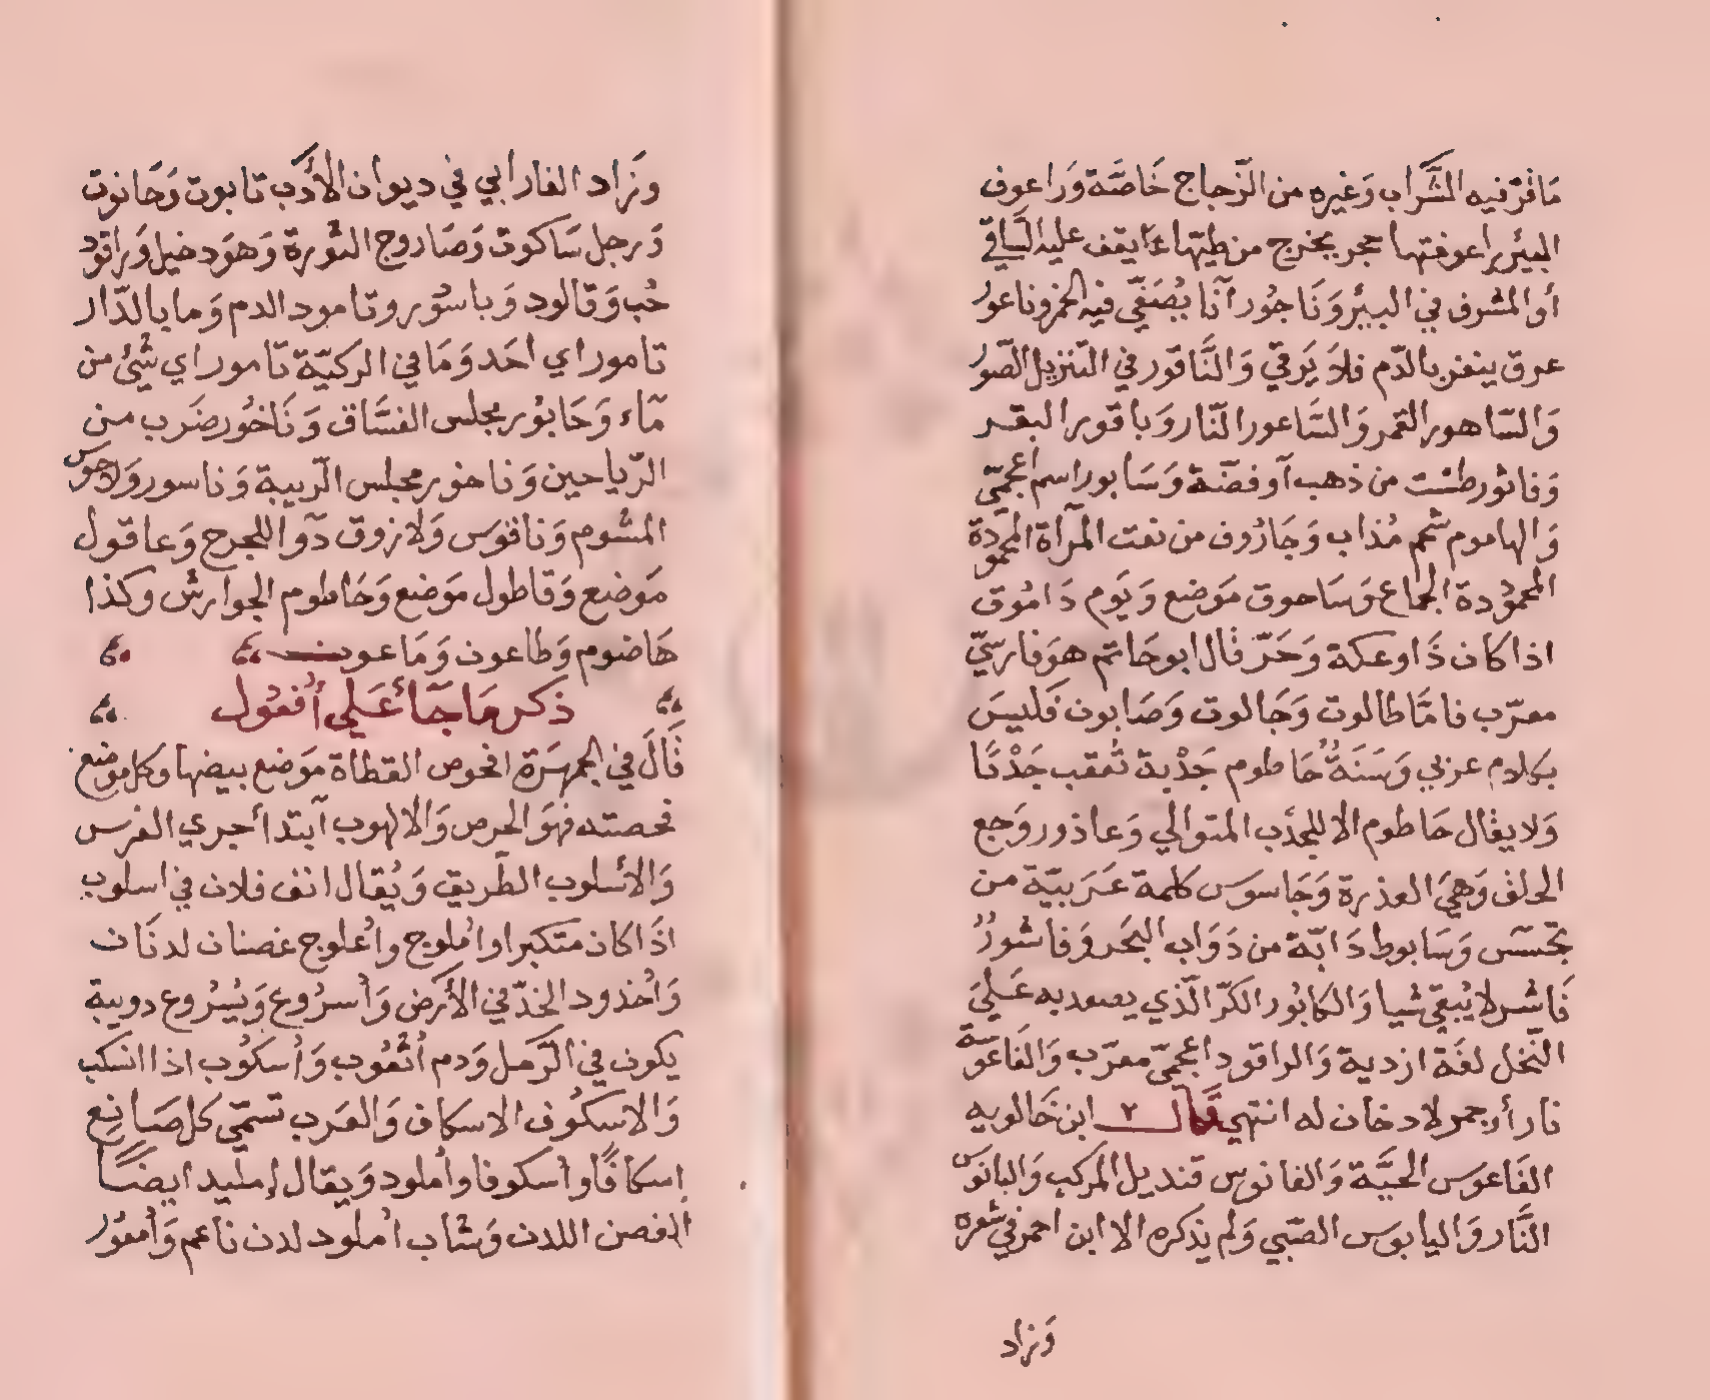 مَا قرّ فيه الشَّراب وَغيره من الزّجاج خَاصَّة وَراعوف
البئر راعوفتها حجر يخرج من طيّها يقف عليه السَّاقي
أو المشرف في البيئر وَنَاجُور آنا يُصَفّي فيه الخمر وناعور
عرق ينعر بالدّم فلاَ يَرقي وَالنَّاقور في التّنزيل الصّور
وَالسّاهور القمر وَالسَّاعور النّار وَباقور البقر
وَفاثور طشت من ذهب آو فضّة وَسَابور اسم اعجميّ
وَالهاموم شحم مُذاب وَجَارُوف من نعت المرآة المحمودة
المحمُوُدة الجماع وَسَاحوق مَوضع وَيَوم دَامُوق
اذا كان ذَا وعكة وَحَرّ قال ابو حَاتم هوَ فارسيّ
معرّب فامَّا طالوت وَجَالوت وَصَابون فَليسَ
بكلام عربي وَسَنَةُ حَاطوم جَدْبة تُعقب جَدْبًا
وَلا يقال حَاطوم الا للجدب المتوالي وَعاذور وَجع
الحلق وَهيَ العذرة وَجَاسوس كلمة عَرَبيّة من
تجسّس وَسَابوط دَابّة من دَوَاب البَحر وَقاشورُ
قَاشر لا يُبقي شيا وَالكابُور الكرّ الّذي يصعد به عَليَ
النّخل لغَة ازدية وَالراقود اعجميّ معرّب وَالفَاعُوسَة
نار أو جمر لا دخان له انتهي قَال ابن خَالويه
الفَاعوَس الحيَّة وَالفانوس قنديل المركب وَالبانَوس
النَّار وَاليابوس الصّبي وَلم يذكره الا ابن احمر في شعره
وَزاد
وزَاد الفارابي في ديوان الأدَب تابوت وَحَانوت
وَرجل سَاكوت وَصَاروج النُورة وَهوَ دخيل وَراقود
حُب وَقالود وَباسُور وتامود الدم وَما بالدّار
تامور اي احَد وَمَا في الركيّة تَامور اي شيْئ من
مآء وَحَابوُر مجلس الفسَّاق وَنَاخُور ضَرب من
الرّياحين وَناخور مجلس الرّيبة وَناسور وَلاحوس
المشوم وَناقوَس وَلازوق دَوا للجرح وَعاقول
مَوضع وَقاطول موَضع وَحَاطوم الجوارش وكذا
هَاضوم وَطاعون وَمَاعون
ذكر مَا جَآ عَلي أُفعُول
قَالَ في الجمهَرَة افحوص القطاة مَوضع بيضها وَكل موضع
فحصته فهوَ افحوص وَالالهوب آبتدأ جري الفرس
وَالأسلوب الطّريق وَيُقال انف فلان في اسلوب
اذَا كان متكبرا واُملوج واُعلوج غصنان لدنَان
وَاُخذود الخذّ في الأرَض وَأُسرُوع وَيُسْرُوع دويبة
يكون في الرَّمل وَدم اُثعُوب وَأُسكُوب اذا انسكب
وَالاسكُوف الاسكاف وَالعَرب تسمّي كل صَانع
إسكافًا وأسكوفا وأملود وَيقال إمليد ايضًا
الغصن اللدن وَشاب اُملود لدن ناعم وَأُمعُور